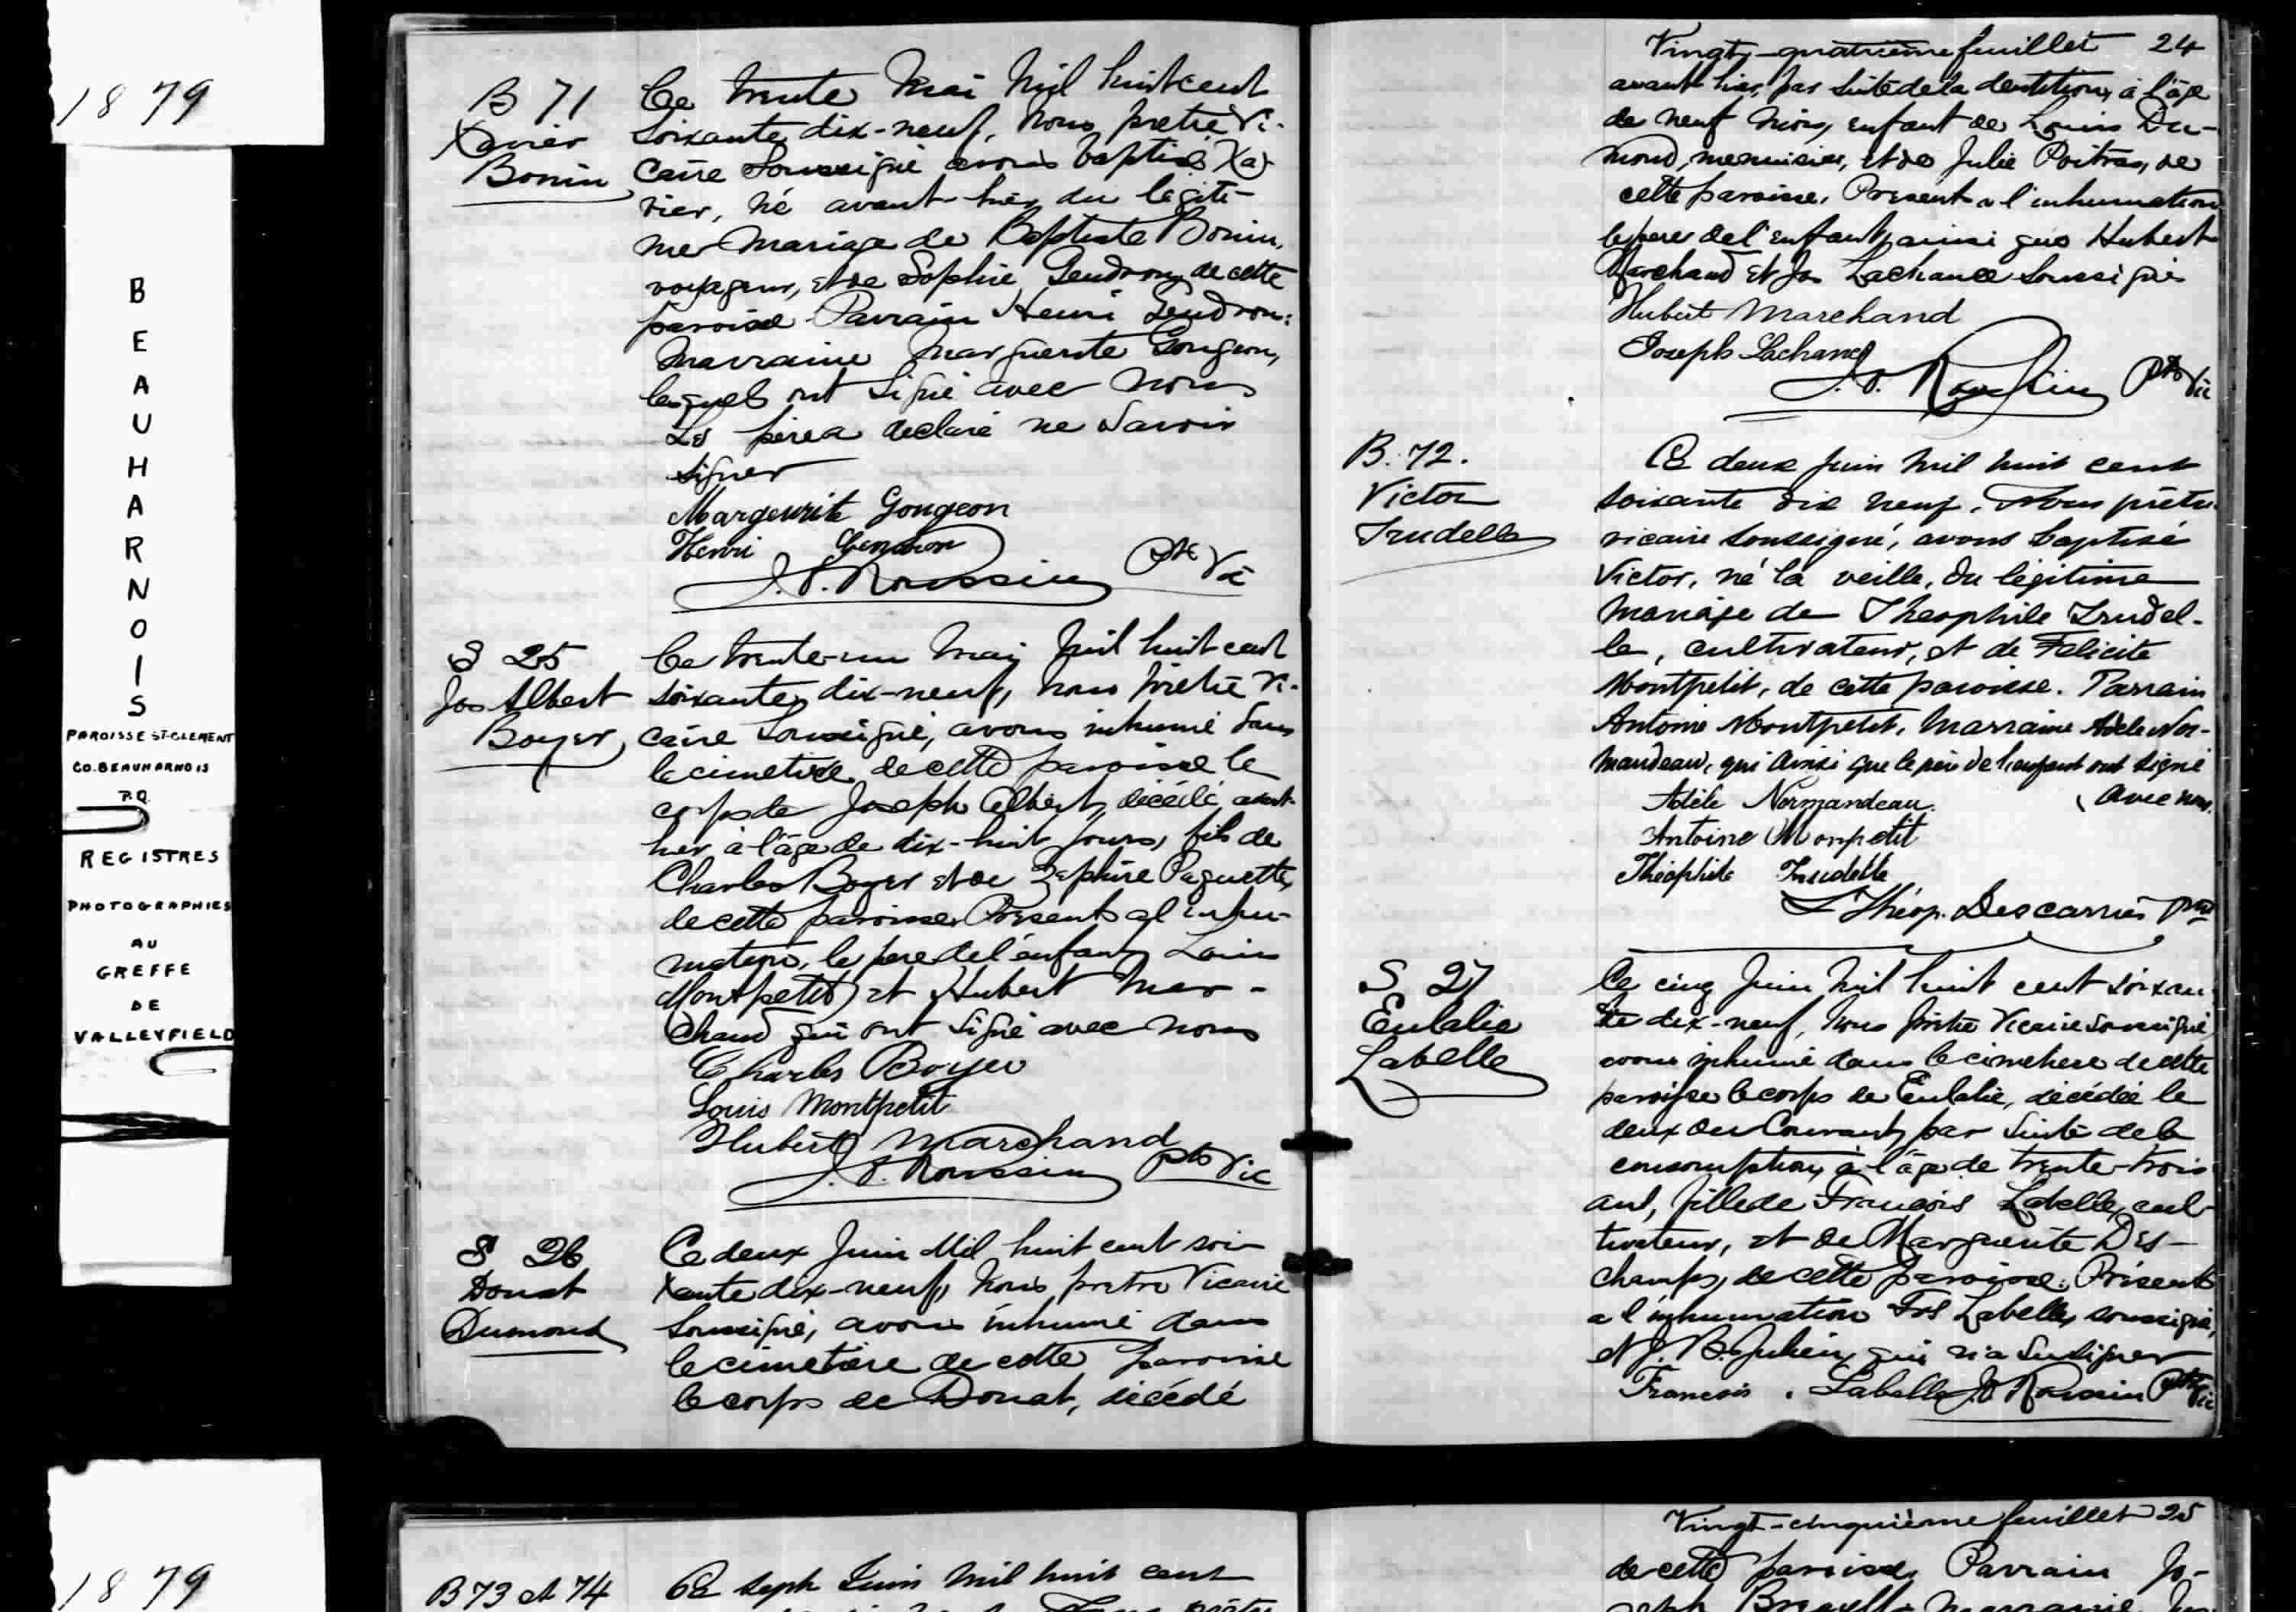 1879
BEAUHARNOIS
PAROISSE ST-CLEMENT
CO. BEAUHARNOIS
P.Q.
REGISTRES
PHOTOGRAPHIES
AU
GREFFE
DE
VALLEYFIELD
1879
B 71
Xavier
Bonin
Ce trente Mai Mil huit cent
soixante dix-neuf, Nous prêtre Vi-
caire Soussigné avons baptisé Xa-
vier, né avant-hier du légiti-
me mariage de Baptiste Bonin,
voyageur, et de Sophie Gendron, de cette
paroisse Parrain Henri Gendron:
Marraine Marguerite Gougeon,
lesquels ont signé avec nous
Le père a declaré ne savoir
signer
Marguerite Gougeon
Henri Gendron
J. O. Roussin Ptre Vic
S 25
Jos Albert
Boyer
Ce trente-un Mai Mil huit cent
soixante dix-neuf, nous prêtre Vi-
caire Soussigné, avons inhumé dans
le cimetière de cette paroisse le
corps de Joseph Albert, décédé avant-
hier à l'âge de dix-huit jours, fils de
Charles Boyer et de Zéphire Paquette,
de cette paroisse. Présents a l'inhu-
mation, le pere de l'enfant, Louis
Montpetit et Hubert Mar-
chand qui ont signé avec nous
Charles Boyer
Louis Montpetit
Hubert Marchand
J. O. Roussin Ptre Vic
S 26
Donat
Dumond
Ce deux Juin Mil huit cent soi-
xante dix-neuf, Nous prêtre Vicaire
Soussigné, avons inhumé dans
le cimetière de cette paroisse
le corps de Donat, décédé
Vingt-quatrième feuillet 24
avant hier, par suite de la dentition, à l'âge
de neuf mois, enfant de Louis Du-
mond, menuisier, et de Julie Poitras, de
cette paroisse. Present a l'inhumation
le pere de l'enfant, ainsi que Hubert
Marchand et Jos Lachance Soussignés
Hubert Marchand
Joseph Lachance
J. O. Roussin Ptre Vic
B. 72.
Victor
Trudelle
Ce deux Juin mil huit cent
soixante dix neuf. Nous prêtre
vicaire soussigné, avons baptisé
Victor, né la veille, du légitime
mariage de Theophile Trudel-
le, cultivateur, et de Felicite
Montpetit, de cette paroisse. Parrain
Antoine Montpetit, Marraine Adele Nor-
mandeau, qui ainsi que le père de l'enfant ont signé
avec nous.
Adèle Normandeau
Antoine Monpetit
Théophile Trudelle
Théop. Descarries ptre
S 27
Eulalie
Labelle
Ce cinq Juin Mil huit cent soixan-
te dix-neuf, Nous prêtre Vicaire Soussigné
avons inhumé dans le cimetiere de cette
paroisse le corps de Eulalie, décédée le
deux du Courant, par Suite de la
consomption, à l'âge de trente-trois
ans, fille de François Labelle, cul-
tivateur, et de Marguerite Des-
champs, de cette paroisse. Présents
a l'inhumation Frs Labelle, soussigné,
et J. B. Julien, qui n'a su signer
Francois Labelle J. O. Roussin Ptre Vic
B 73 et 74
Ce sept Juin Mil huit cent
Vingt-cinquième feuillet 25
de cette paroisse, Parrain Jo-